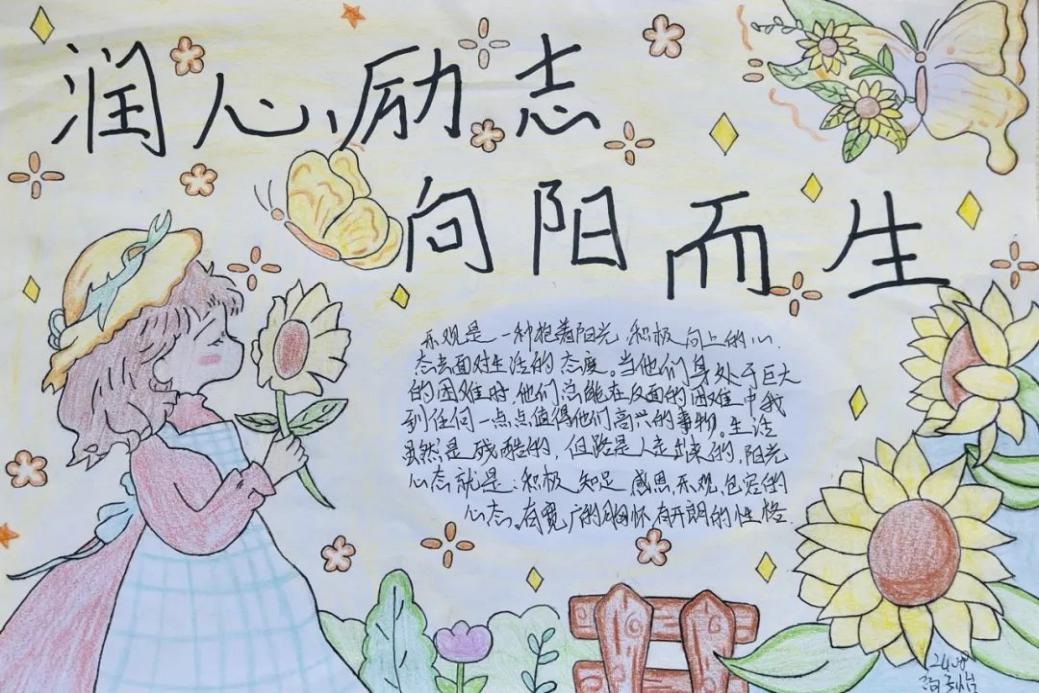 润心励志
向阳而生
乐观是一种抱着阳光,积极向上的心
态去面对生活的态度。当他们身处于巨大
的困难时,他们总能在反面的困难中找
到任何一点点值得他们高兴的事物。生活
虽然是残酷的,但路是人走出来的,阳光
心态就是:积极 知足 感恩 乐观 包容的
心态。有宽广的胸怀 有开朗的性格.